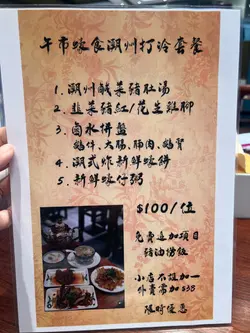 午市蠔食潮州打冷套餐
1. 潮州鹹菜豬肚湯
2. 韭菜豬紅/花生雞腳
3. 鹵水拼盤
鵝件、大腸、腩肉、鵝腎
4. 潮式炸新鮮蠔餅
5. 新鮮蠔仔粥
$100/位
免費追加項目
豬油撈飯
小店不設加一
外賣需加$38
限時優惠